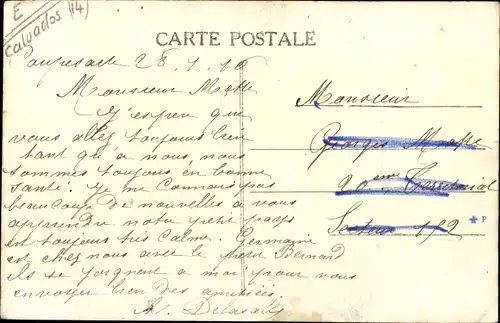 E
Calvados (14)
CARTE POSTALE
28.1.16
Monsieur
J'espère que
vous allez toujours bien
tant qu'à nous, nous
sommes toujours en bonne
santé. Je me connais pas
beaucoup de nouvelles à vous
apprendre notre petit pays
est toujours très calme. Germaine
est chez nous avec le petit Bernard
Ils se joignent a moi pour vous
envoyer bien des amitiés
Monsieur
Georges
20eme Territorial
Secteur 152
* P